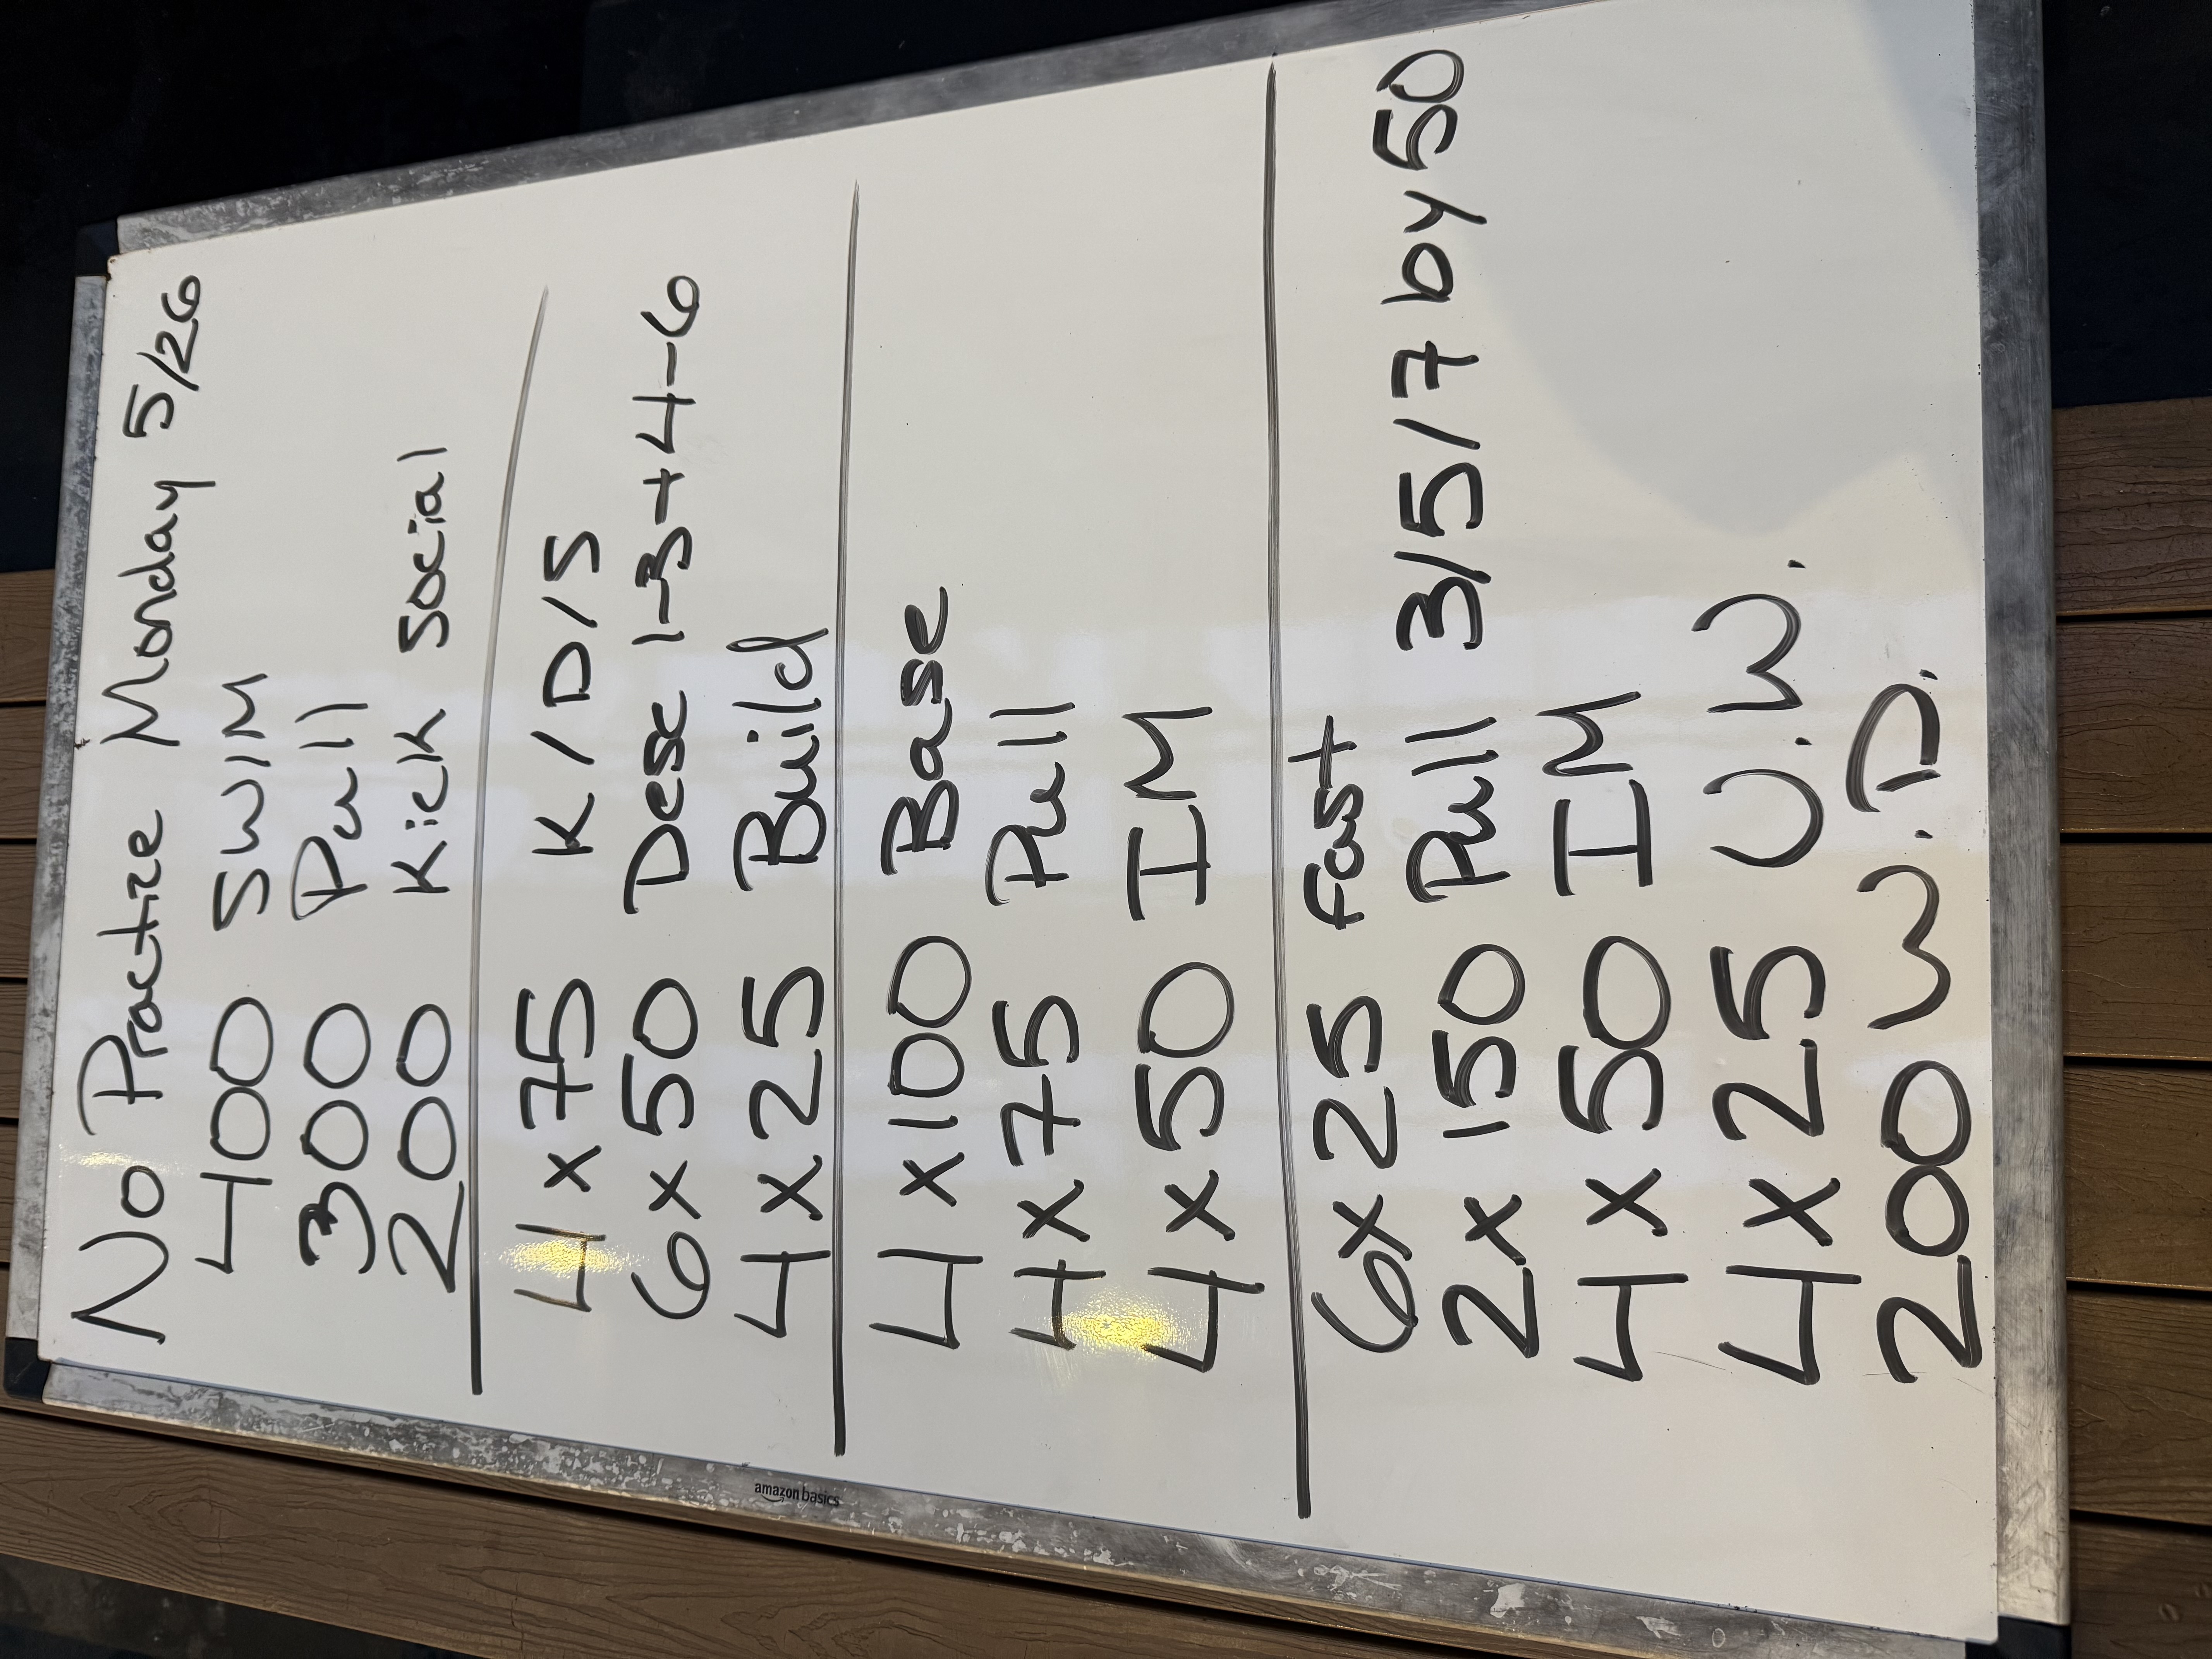 No Practize Monday 5/26
400 SWIM
300 Pull
200 Kick Social
4 x 75 K/D/S
6 x 50 Desc 1-3 + 4-6
4 x 25 Build
4 x 100 Base
4 x 75 Pull
4 x 50 IM
6 x 25 fast
2 x 150 Pull 3/5/7 by 50
4 x 50 IM
4 x 25 U.W.
200 W.D.
amazon basics